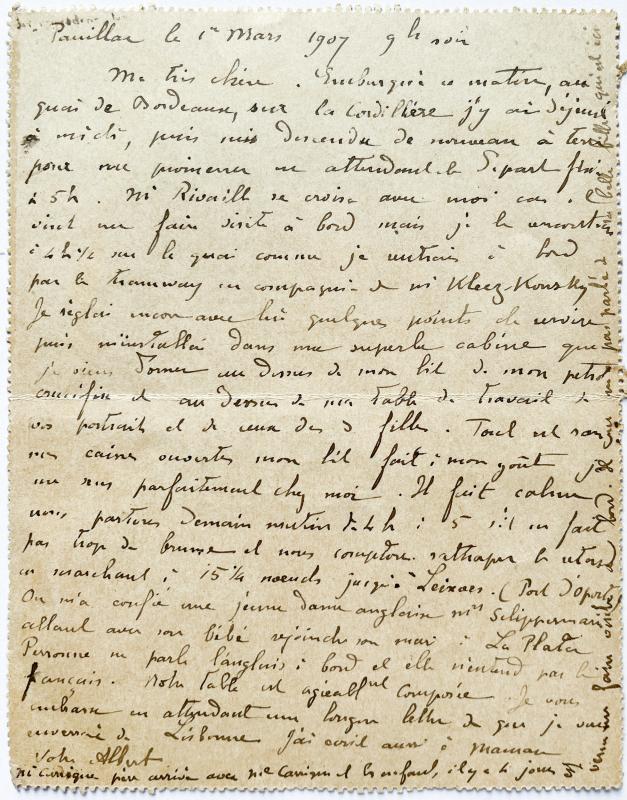 Pauillac le 1er Mars 1907 9h soir
Ma très chère. Embarqué ce matin, au
quai de Bordeaux, sur la Cordillère j'y ai déjeuné
à midi, puis suis descendu de nouveau à terre
pour me promener en attendant le départ fixé
à 5h. Mr Rivaill se croisa avec moi car
vint me faire visite à bord mais je le rencontrai
à 4h 1/2 sur le quai comme je rentrais à bord
par le tramway en compagnie de Mr Kleez-Konzky
Je réglai encore avec lui quelques points de service
puis m'installai dans ma superbe cabine que
je viens d'orner au dessus de mon lit de mon petit
crucifix et au dessus de ma table de travail de
vos portrait et de ceux des 3 filles. Tout est
mes caisses ouvertes mon lit fait à mon goût je
me sens parfaitement chez moi. Il fait calme
nous partons demain matin de 4h à 5 s'il ne fait
pas trop de brume et nous comptons rattraper le retard
en marchant à 15 1/4 noeuds jusqu'à Leixoes. (Port d'Oporto)
On m'a confié une jeune dame anglaise Mrs
allant avec son bébé rejoindre son mari à La Plata
Personne ne parle l'anglais à bord et elle n'entend pas le
français. Notre table est agréablt composée. Je vous
embrasse en attendant une longue lettre de que je vous
enverrai de Lisbonne J'ai écrit aussi à maman
Votre Albert
Mr père arrive avec Mme et les enfants, il y a 4 jours et
venu me faire visite à bord. Il ne m'a pas parlé de sa belle fille qui est ici